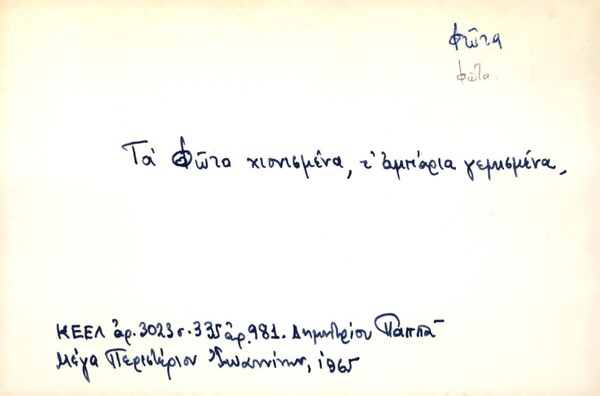 Φῶτα
φῶτα.
Τὰ Φῶτα χιονισμένα, τ' ἀμπάρια γεμισμένα.
ΚΕΕΛ ἀρ. 3023 σ. 335 ἀρ. 981. Δημητρίου Παππᾶ
Μέγα Περιστέριον Ἰωαννίνων, 1965